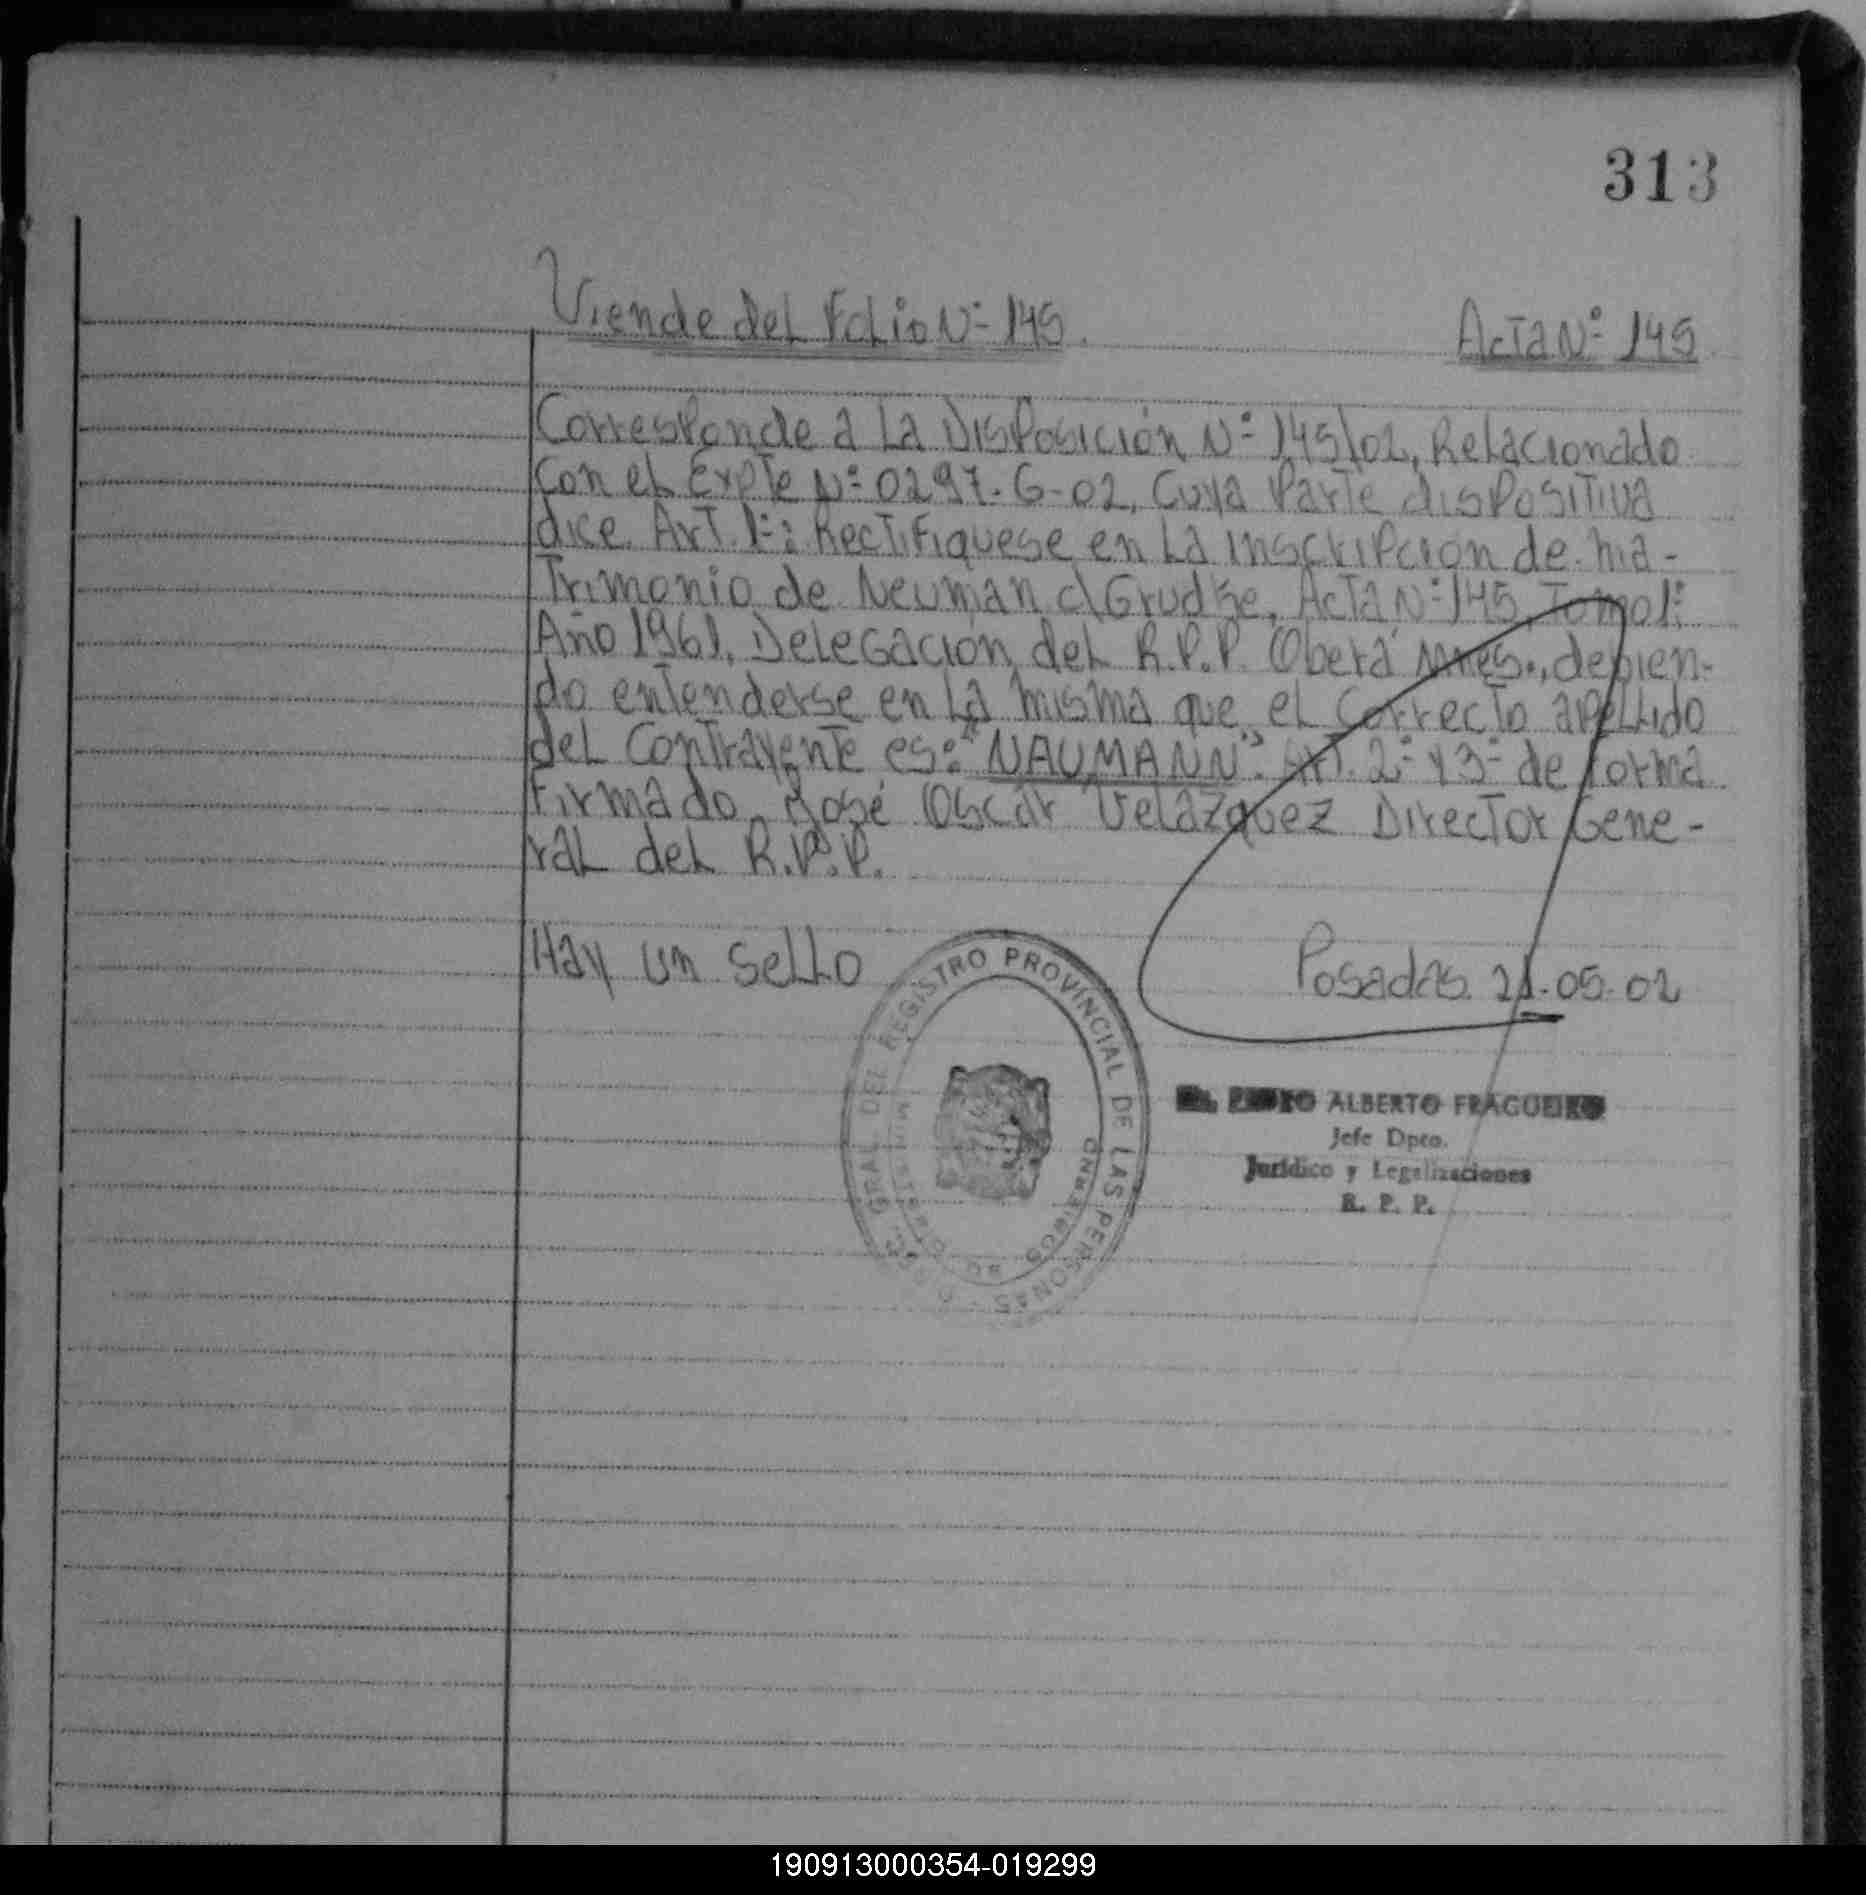 313
Viende del Folio Nº 145. Acta Nº 145
Corresponde a la Disposición Nº 145/02, Relacionado
con el Expte Nº 0297-G-02, Cuya Parte dispositiva
dice. Art. 1º: Rectifiquese en la inscripcion de ma-
trimonio de Neuman c/ Grudke, Acta Nº 145, Tomo 1º
Año 1961, Delegacion del R.P.P. Oberá Mnes., debien-
do entenderse en la misma que el correcto apellido
del Contrayente es: "NAUMANN". Art. 2º y 3º de forma
Firmado José Oscar Velazquez Director Gene-
ral del R.P.P.
Hay un sello
Posadas 21-05-02
GRAL DEL REGISTRO PROVINCIAL DE LAS PERSONAS
MINISTERIO DE GOBIERNO
ALBERTO FRAGUEIRO
Jefe Dpto.
Jurídico y Legalizaciones
R. P. P.
190913000354-019299